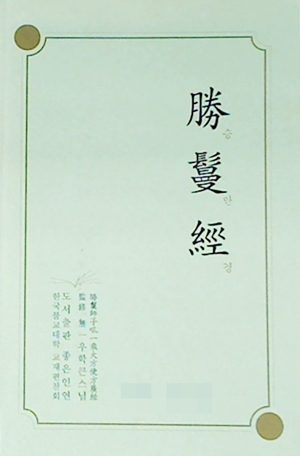 勝鬘經
승만경
勝鬘師子吼一乘大方便方廣經
監修 無一 우학큰스님
도서출판 좋은인연
한국불교대학 교재편찬회